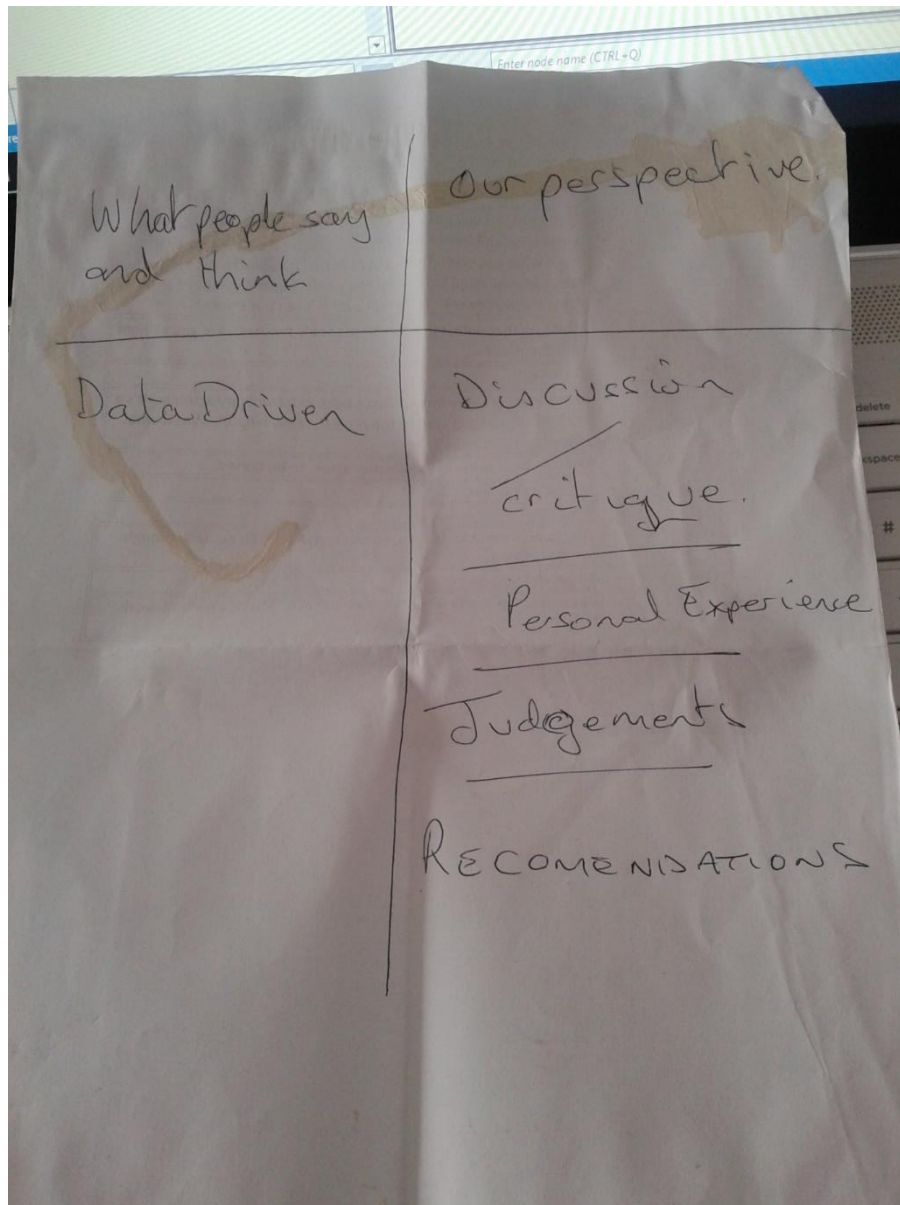 Enter node name (CTRL+Q)
What people say
and think
Our perspective.
Data Driven
Discussion
critique.
Personal Experience
Judgements
RECOMENDATIONS
delete
kspace
#